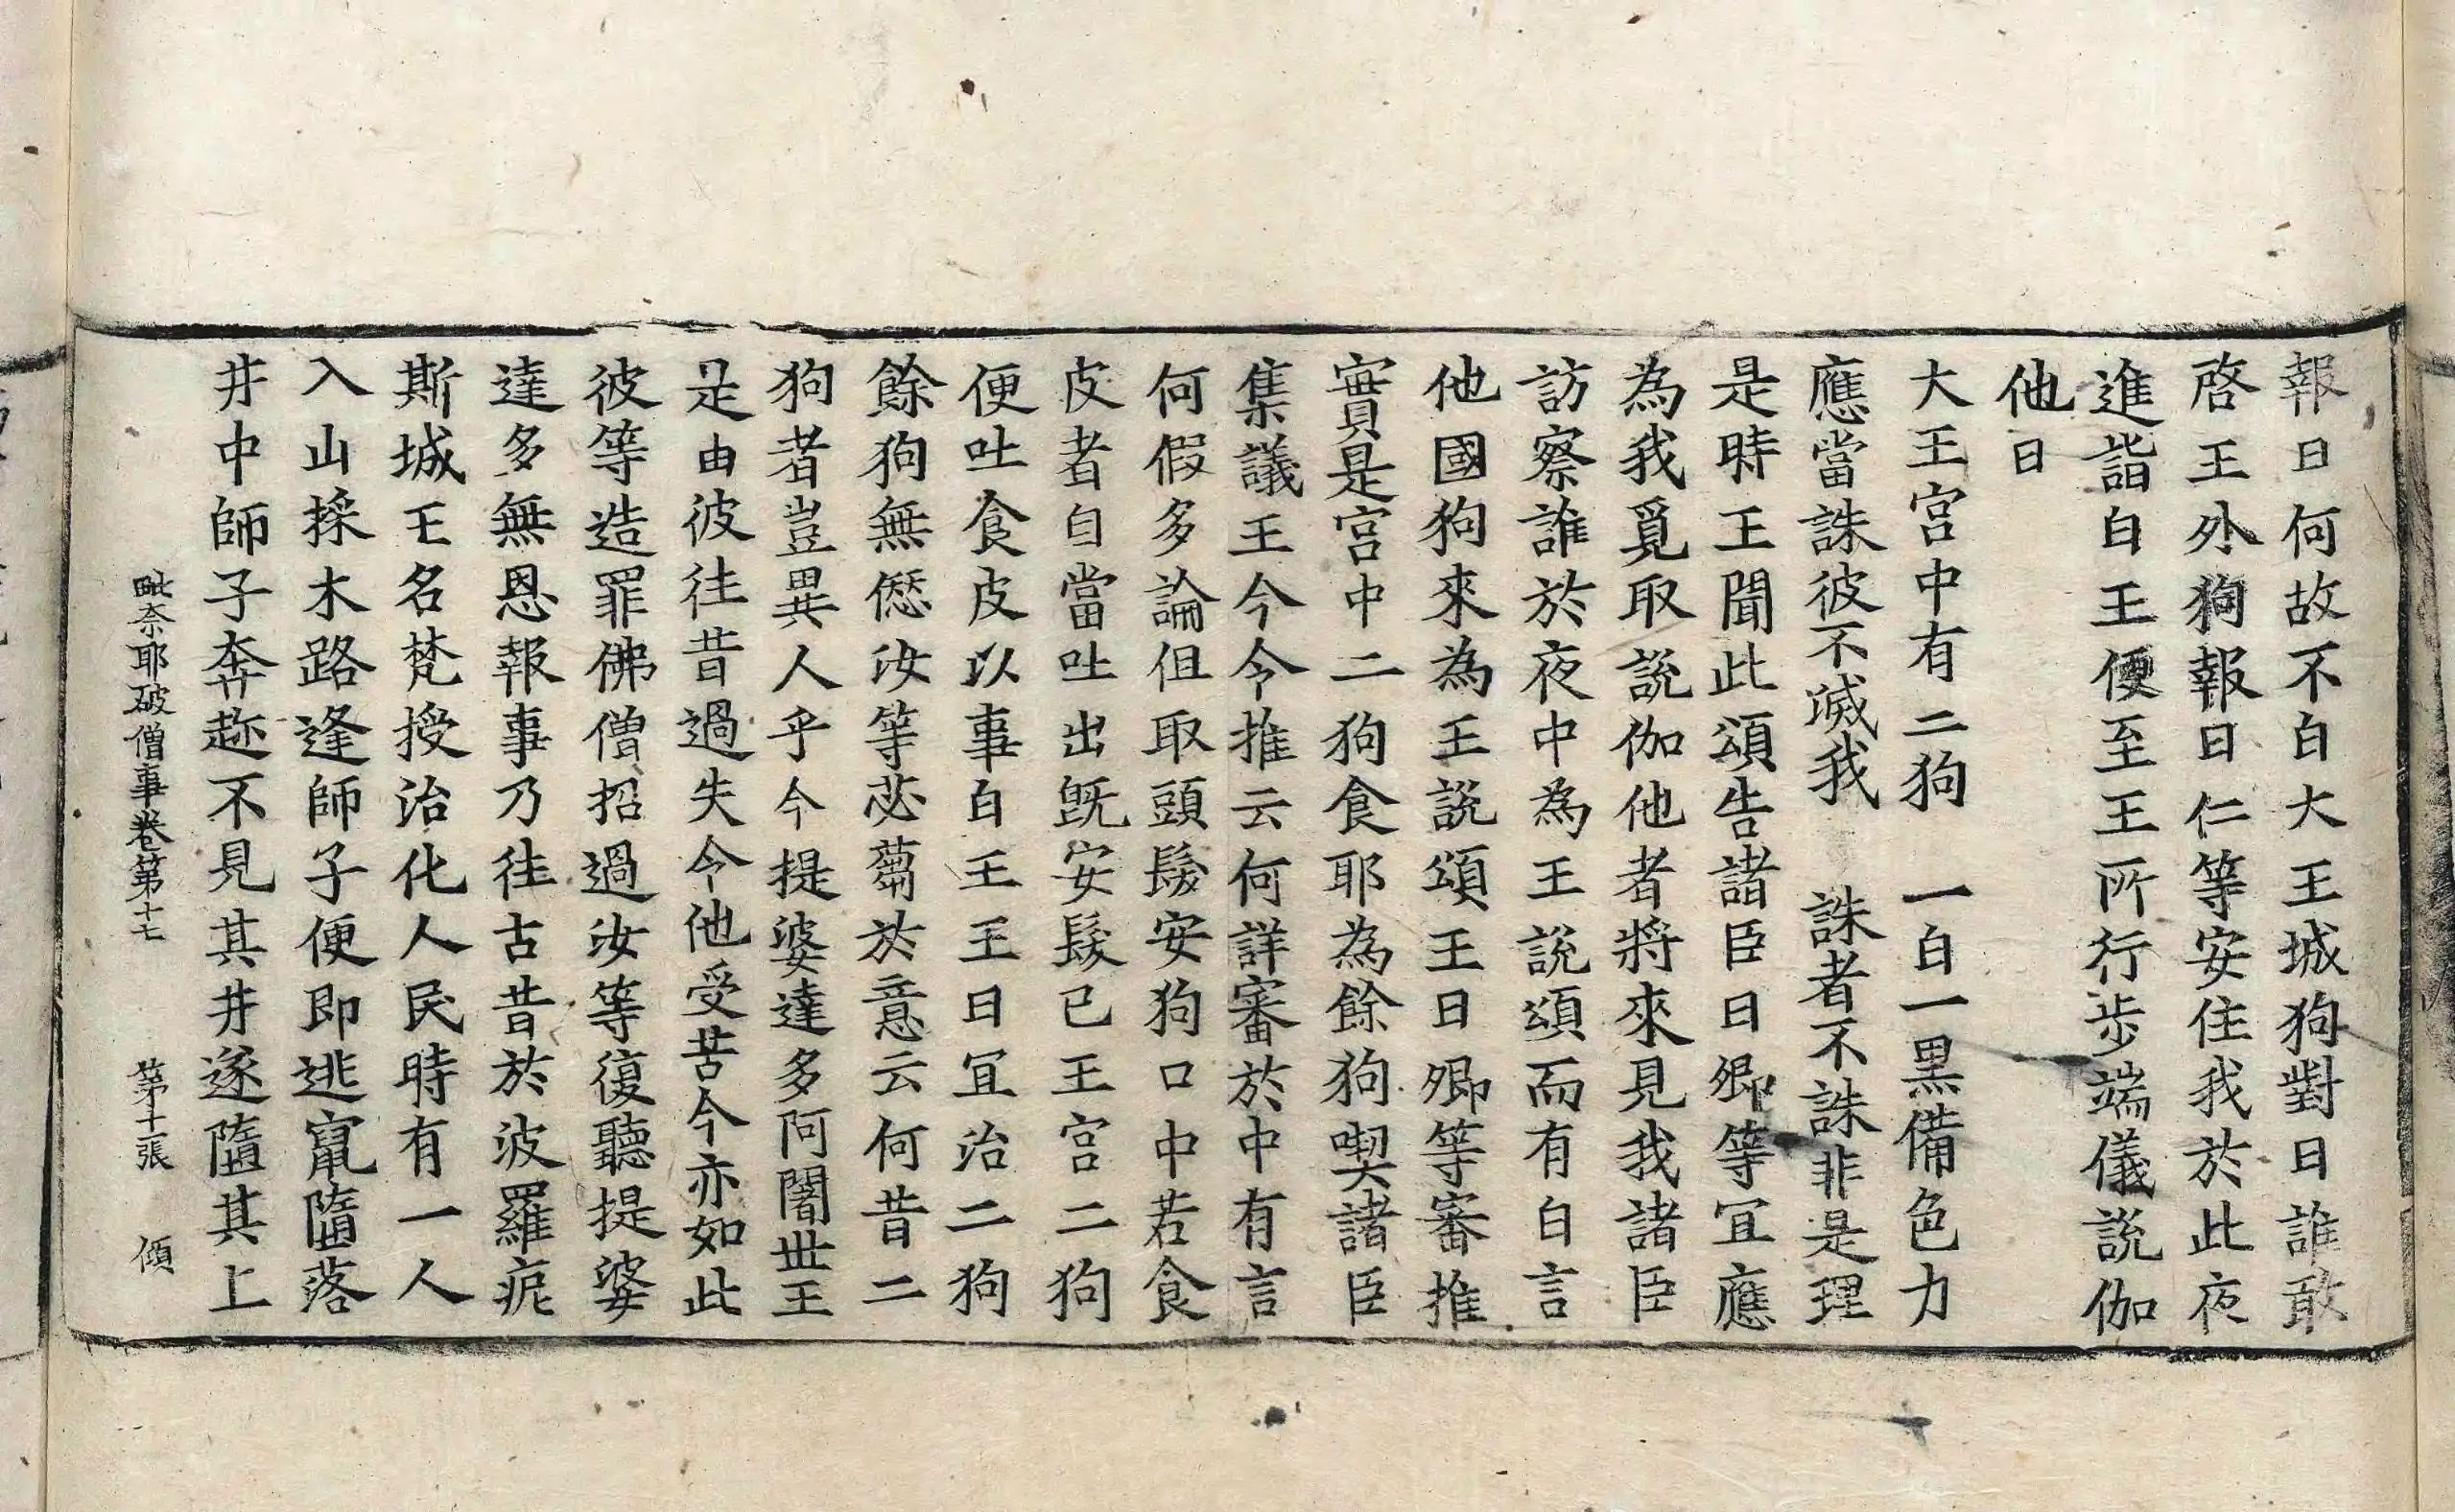 報曰何故不白大王城狗對曰誰敢
啓王外狗報曰仁等安住我於此夜
進詣白王便至王所行步端儀說伽
他曰
大王宮中有二狗　一白一黑備色力
應當誅彼不滅我　誅者不誅非是理
是時王聞此頌告諸臣曰卿等宜應
為我覓取說伽他者將來見我諸臣
訪察誰於夜中為王說頌而有白言
他國狗來為王說頌王曰卿等審推
實是宮中二狗食耶為餘狗喫諸臣
集議王今令推云何詳審於中有言
何假多論但取頭髮安狗口中若食
皮者自當吐出既安髮已王宮二狗
便吐食皮以事白王王曰宜治二狗
餘狗無愆汝等苾蒭於意云何昔二
狗者豈異人乎今提婆達多阿闍世王
是由彼往昔過失今他受苦今亦如此
彼等造罪佛僧招過汝等復聽提婆
達多無恩報事乃往古昔於波羅痆
斯城王名梵授治化人民時有一人
入山採木路逢師子便即逃竄墮落
井中師子奔趂不見其井遂墮其上
毗奈耶破僧事卷第十七　第十一張　傾